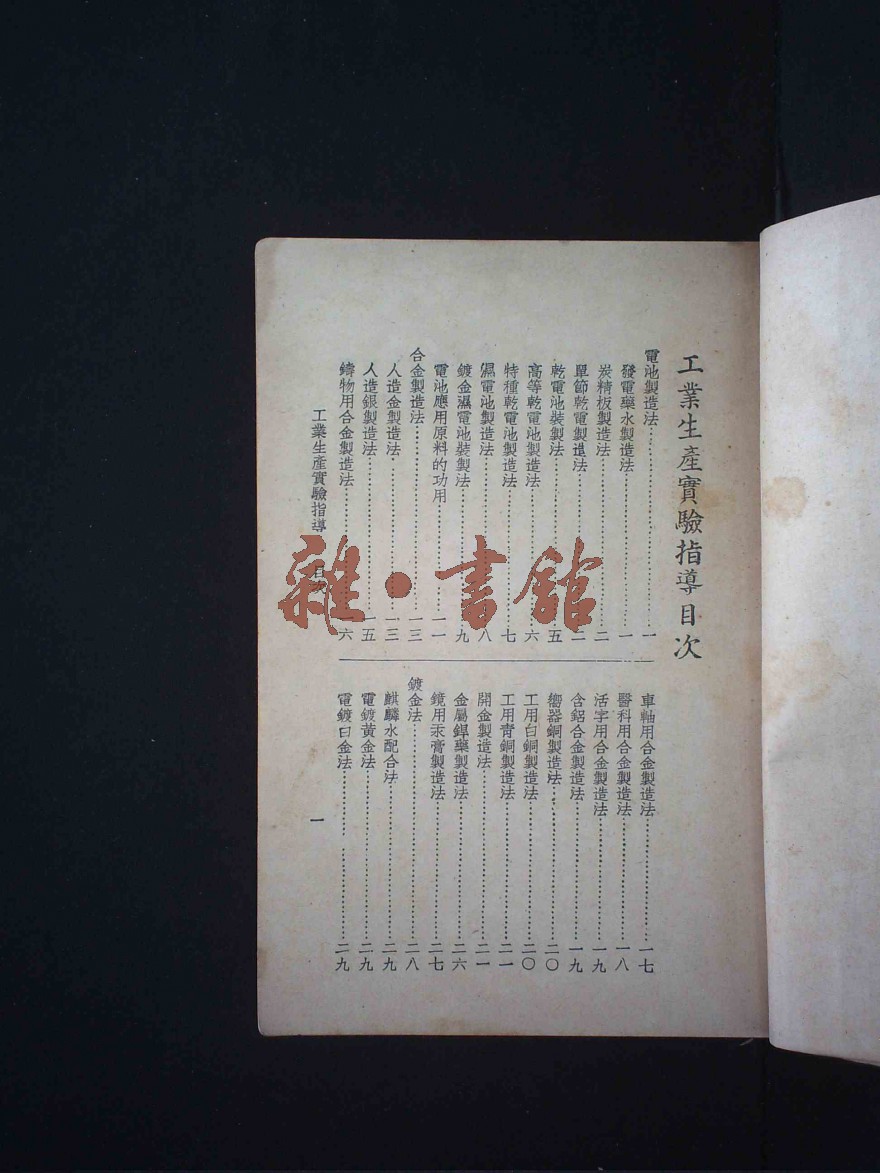 工業生產實驗指導目次
電池製造法…………一
發電藥水製造法…………一
炭精板製造法…………二
單節乾電製造法…………二
乾電池裝製法…………五
高等乾電池製造法…………六
特種乾電池製造法…………七
濕電池製造法…………八
鍍金濕電池裝製法…………九
電池應用原料的功用…………一一
合金製造法…………一三
人造金製造法…………一三
人造銀製造法…………一五
鑄物用合金製造法…………六
車軸用合金製造法…………一七
醫科用合金製造法…………一八
活字用合金製造法…………一九
含鋁合金製造法…………一九
嚮器銅製造法…………二〇
工用白銅製造法…………二〇
工用青銅製造法…………二一
開金製造法…………二一
金屬銲藥製造法…………二六
鏡用汞膏製造法…………二七
鍍金法…………二八
麒麟水配合法…………二九
電鍍黃金法…………二九
電鍍白金法…………二九
工業生產實驗指導 目次 一
雜·書館